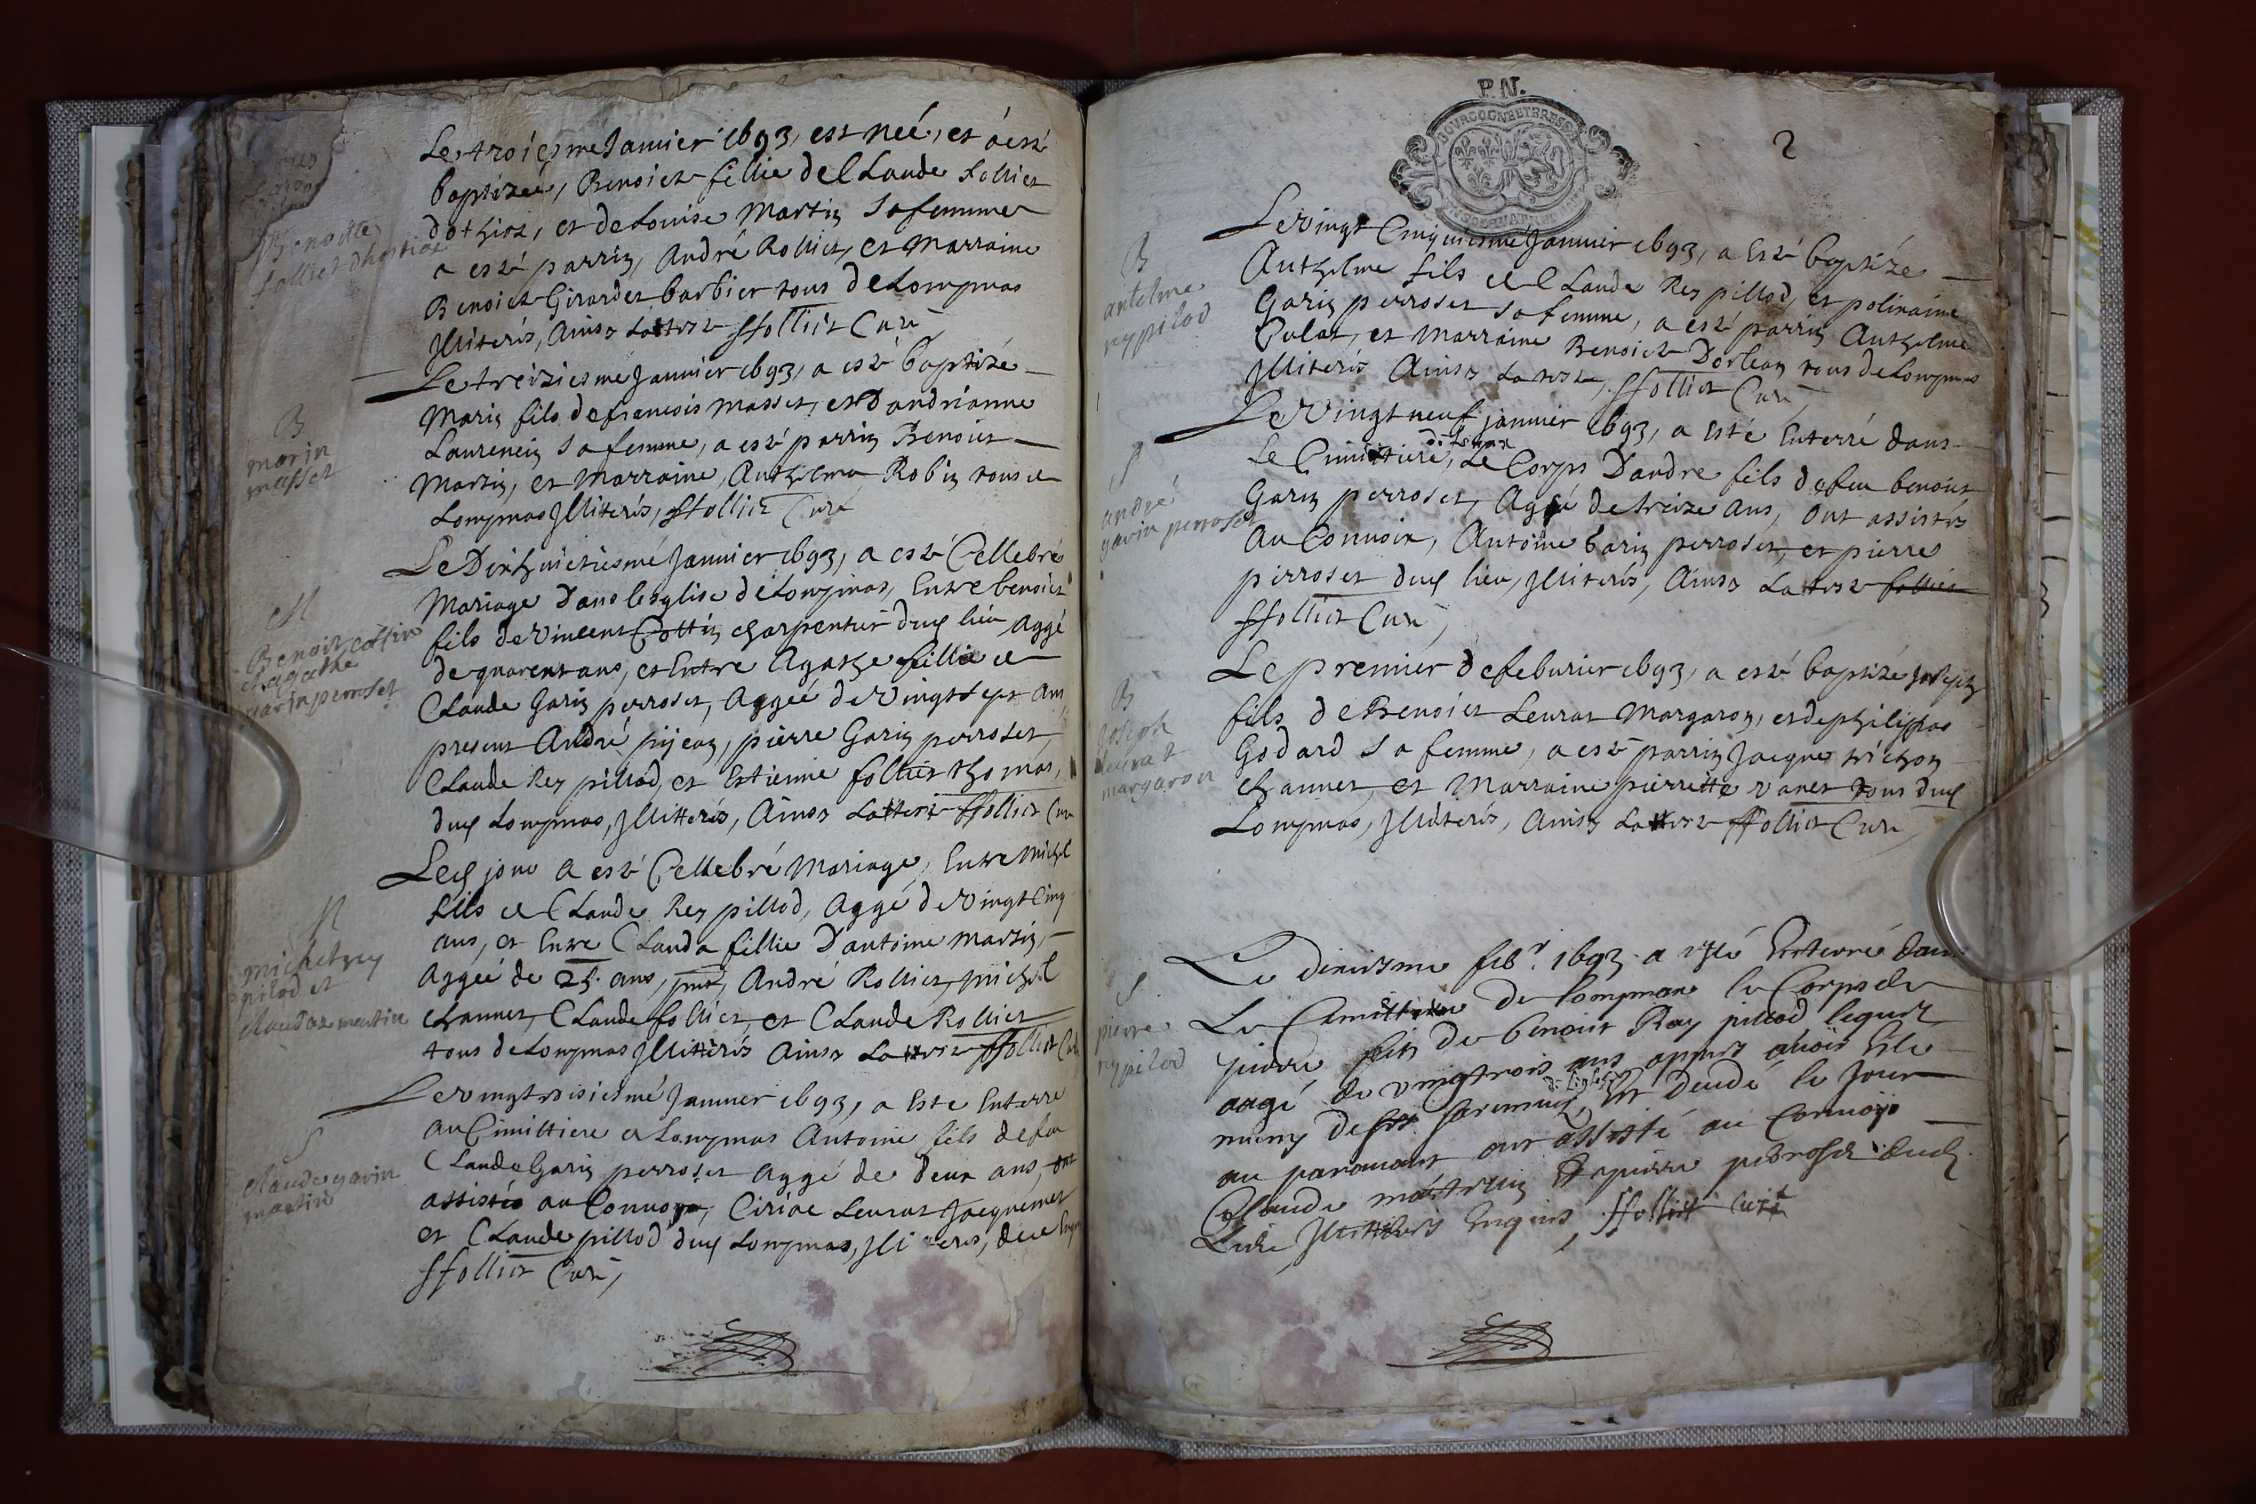 Le troiesme Janvier 1693, est neé, et a esté
baptizeé, Benoiste fillie de Claude follliet
dothios, et de Louise Martin sa femme
a esté parrin, André Rolliet, et Marraine
Benoiste Girardet barbier tous de Lompnas
Illiterés, Ainsy Latteste ffolliet Curé
Benoitte
folliet dhostiaz
Le treiziesme Janvier 1693, a esté baptizé
Marin fils de francois Masset, et Dandrianne
Laurencin sa femme, a esté parrin Benoist
Martin, et Marraine, Anthelma Robin tous de
Lompnas Illiterés, ffolliet Curé
B
marin
masset
Le Dixhuictiesme Janvier 1693, a esté Cellebré
Mariage Dans lesglise de Lompnas, Entre benoist
fils de Vincent Cottin charpentier dud lieu Aggé
de quarent ans, et Entre Agathe fillie de
Claude Garin perroset, Aggeé de Vingt sept ans,
present André pijean, pierre Garin perroset,
Claude Rey pillod, et Estienne folliet thomas,
dud Lompnas, Illitterés, Ainsy Latteste ffolliet Curé
M
Benoit cottin
et agathe
garin perroset
Led jour a esté Cellebré Mariage, Entre Michel
fils de Claude Rey pillod, Aggé de Vingt Cinq
ans, et Entre Clauda fillie Dantoine Martin,
Aggeé de 25. ans, pnt, André Rolliet, Michel
channet, Claude folliet, et Claude Rolliet
tous de Lompnas Illitterés Ainsy Latteste ffolliet Curé
M
michel rey
pilod et
claudaz martin
Le vingttroisiesme Janvier 1693, a Esté Enterré
au Cimittiere de Lompnas Antoine fils de feu
Claude Garin perroset Aggé de Deux ans, ont
assistés au Convoye, Ciriac Leurat Jacquemet
et Claude pillod dud Lompnas, Illiterés, de ce Enquis
ffolliet Curé,
S
claude garin
martin
P.N.
BOURGOGNE ET BRESSE
2
Le Vingt Cinquiesme Janvier 1693, a Esté baptizé
Anthelme fils de Claude Rey pillod, et polinaire
Garin perroset sa femme, a esté parrin Anthelme
Culat, et Marraine Benoiste Dorlean tous de Lompnas
Illiterés Ainsy Lateste, ffolliet Curé
B
antelme
rey pilod
Le Vingt neuf janvier 1693, a Esté Enterré dans
de Lompn
Le Cimittiere, Le Corps Dandre fils de feu benoist
Garin perroset, Aggé de treize Ans, Ont assistés
Au Convoix, Antoine Garin perroset, et pierre
pirroset dud lieu, Illiterés, Ainsy Lateste folliet
ffolliet Curé,
S
andré
garin perroset
Le premier de feburier 1693, a esté baptizé Joseph
fils de Benoist Leurat Margaron, et de philippas
Godard sa femme, a esté parrin Jacque trichon
channet, et Marraine pierrette vanet tous dud
Lompnas, Illiterés, Ainsy Latteste ffolliet Curé
B
Joseph
leurat
margaron
Le dixiesme febr. 1693 a esté Enterré dans
Le Cimittiere de Lompnas le Corps de
pierre fils de benoist Rey pillod lequel
aagé de vingtrois ans appres avoir Esté
muny des Saremens, Est Decedé le Jour
de Leglise
au paravant, ont assisté au Convoye
Claude martin Et pierre perroset dud
Lieu Illitterés Enquis, ffolliet Curé
S
pierre
rey pilod